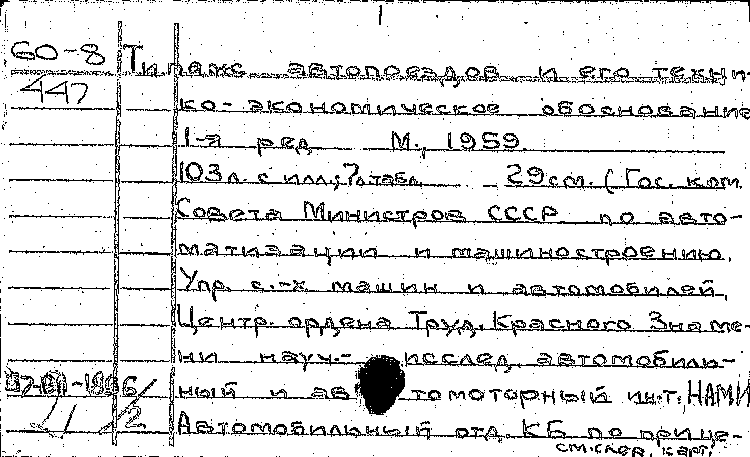 1
60-8 Типаж автопоездов и его техни-
447 ко-экономическое обоснование
1-я ред М., 1959.
103л. с илл.; 7л.табл. 29см. (Гос. ком.
Совета Министров СССР по авто-
матизации и машиностроению.
Упр. с.-х машин и автомобилей.
Центр. ордена Труд. Красного Знаме-
ни науч- исслед. автомобиль-
ный и автомоторный ин-т, НАМИ
Автомобильный отд. КБ по прице-
см. след. карт.